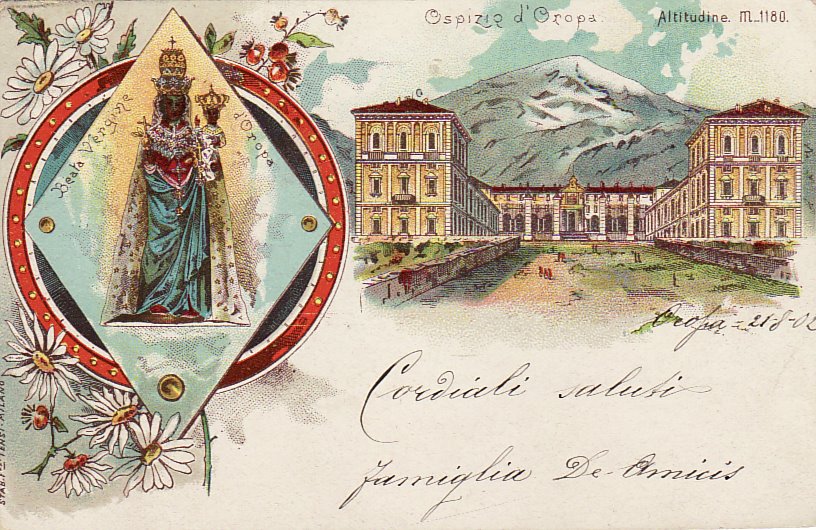 Ospizio d'Oropa.
Altitudine. M. 1180.
Beata Vergine d'Oropa
Oropa - 21-8-02
Cordiali saluti
famiglia De-Amicis
MILANO